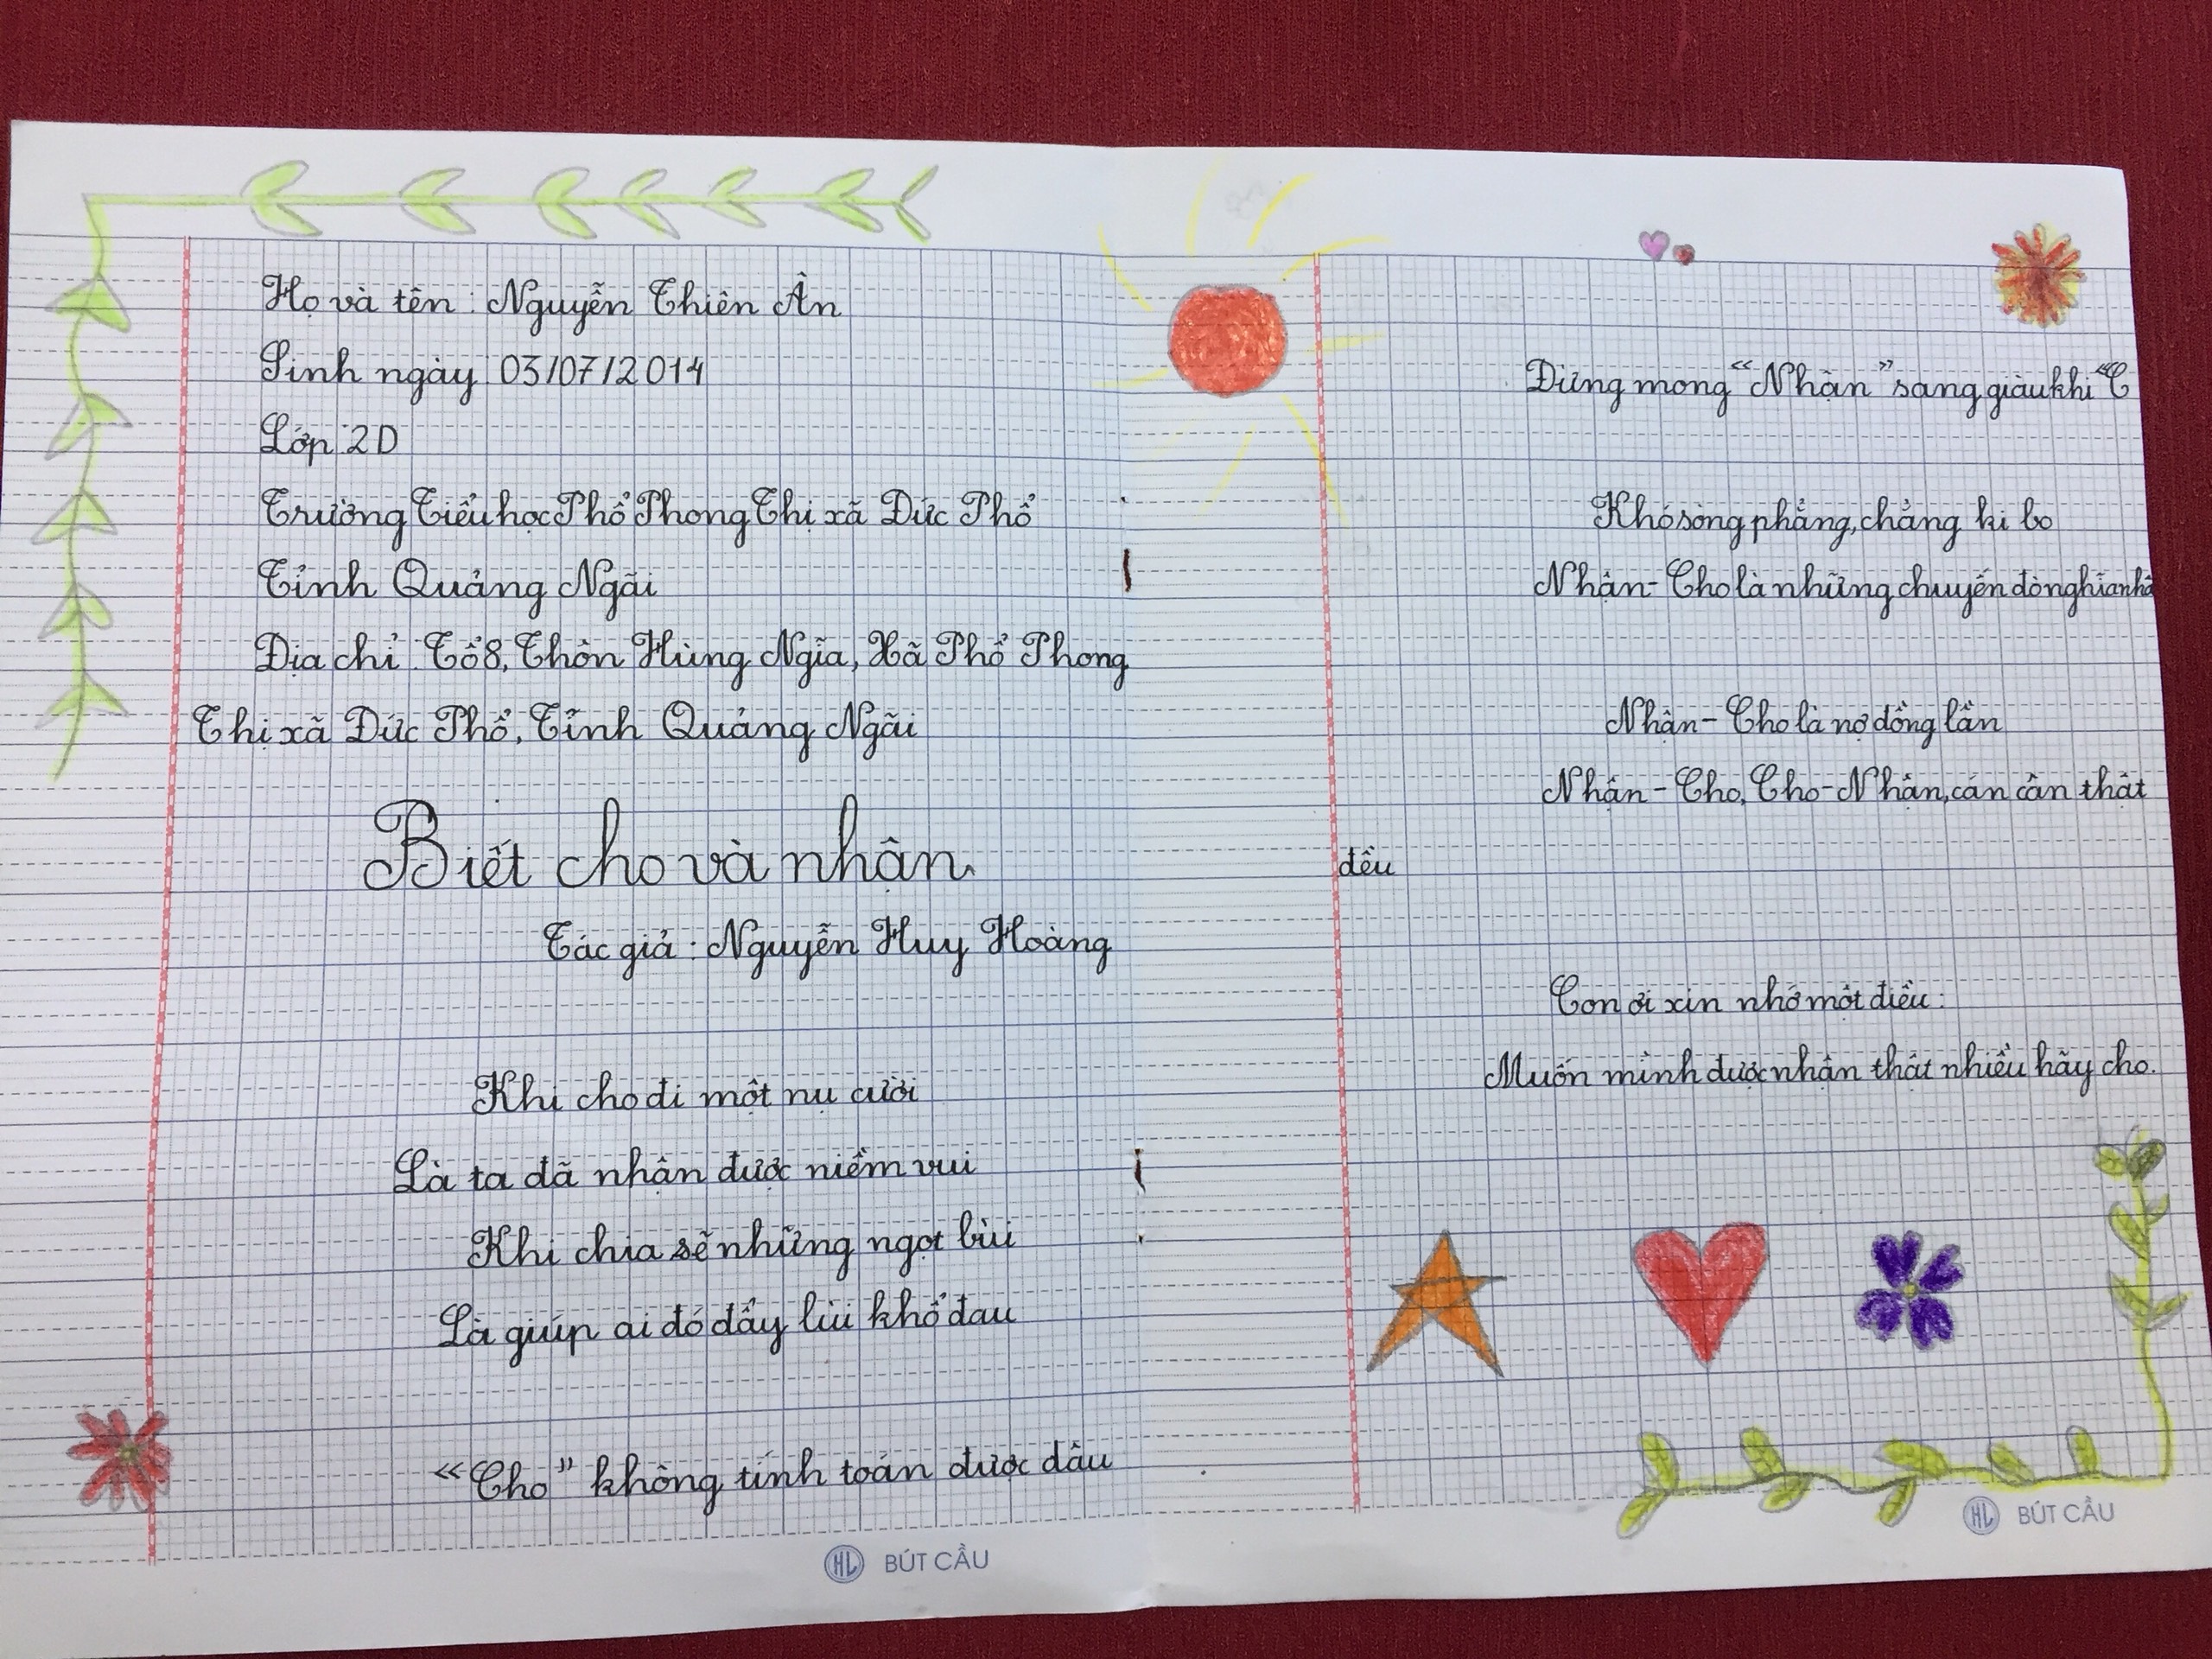 Họ và tên: Nguyễn Thiên Ân
Sinh ngày: 03/07/2014
Lớp: 2D
Trường Tiểu học Phổ Phong Thị xã Đức Phổ
Tỉnh Quảng Ngãi
Địa chỉ: Tổ 8, Thôn Hùng Ngĩa, Xã Phổ Phong
Thị xã Đức Phổ, Tỉnh Quảng Ngãi
Biết cho và nhận
Tác giả: Nguyễn Huy Hoàng
Khi cho đi một nụ cười
Là ta đã nhận được niềm vui
Khi chia sẽ những ngọt bùi
Là giúp ai đó đẩy lùi khổ đau
“Cho” không tính toán được đâu
BÚT CẦU
Đừng mong “Nhận” sang giàu khi “C
Khó sòng phẳng, chẳng ki bo
Nhận - Cho là những chuyến đò nghĩa nhâ
Nhận - Cho là nợ đồng lần
Nhận - Cho, Cho - Nhận, cán cân thật
đều
Con ơi xin nhớ một điều:
Muốn mình được nhận thật nhiều hãy cho.
HL BÚT CẦU